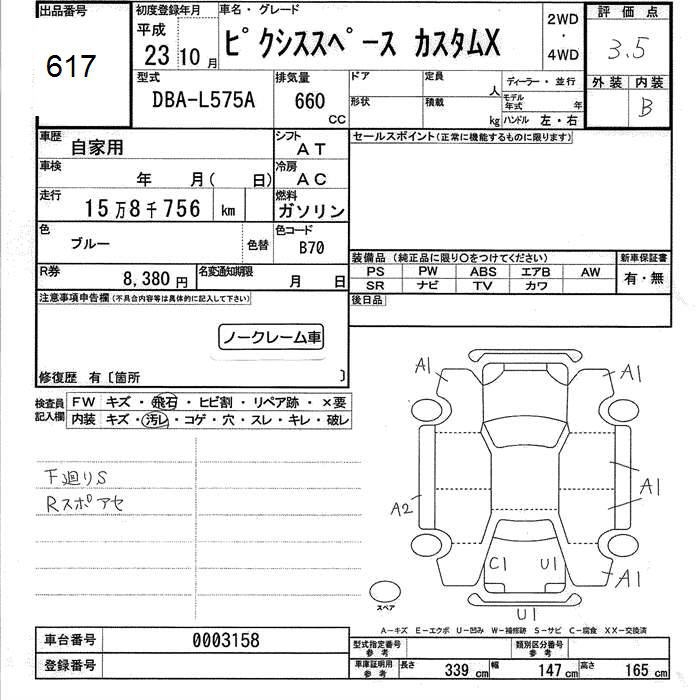 出品番号
617
初度登録年月
平成
23 10 月
車名・グレード
ピクシススペース カスタムX
2WD
・
4WD
評価点
3.5
外装 内装
B
型式
DBA-L575A
排気量
660
CC
ドア
定員
人
形状
積載
kg
ディーラー・並行
モデル
年式 年
ハンドル 左・右
車歴
自家用
シフト
AT
車検
年 月( 日)
冷房
AC
走行
15万8千756 km
燃料
ガソリン
色
ブルー
色替
色コード
B70
R券
8,380 円
名変通知期限
月 日
セールスポイント(正常に機能するものに限ります)
装備品(純正品に限り〇をつけてください)
PS PW ABS エアB AW
SR ナビ TV カワ
新車保証書
有・無
後日品
注意事項申告欄(不具合内容等は具体的に記入して下さい)
ノークレーム車
修復歴 有〔箇所 〕
検査員
記入欄
FW キズ・飛石・ヒビ割・リペア跡・×要
内装 キズ・汚レ・コゲ・穴・スレ・キレ・破レ
下廻りS
Rスポアセ
A1
A1
A1
A2
C1
U1
A1
U1
スペア
A-キズ E-エクボ U-凹み W-補修跡 S-サビ C-腐食 XX-交換済
車台番号
0003158
登録番号
型式指定番号
参考
類別区分番号
参考
車庫証明用
参考
長さ 339 cm 幅 147 cm 高さ 165 cm